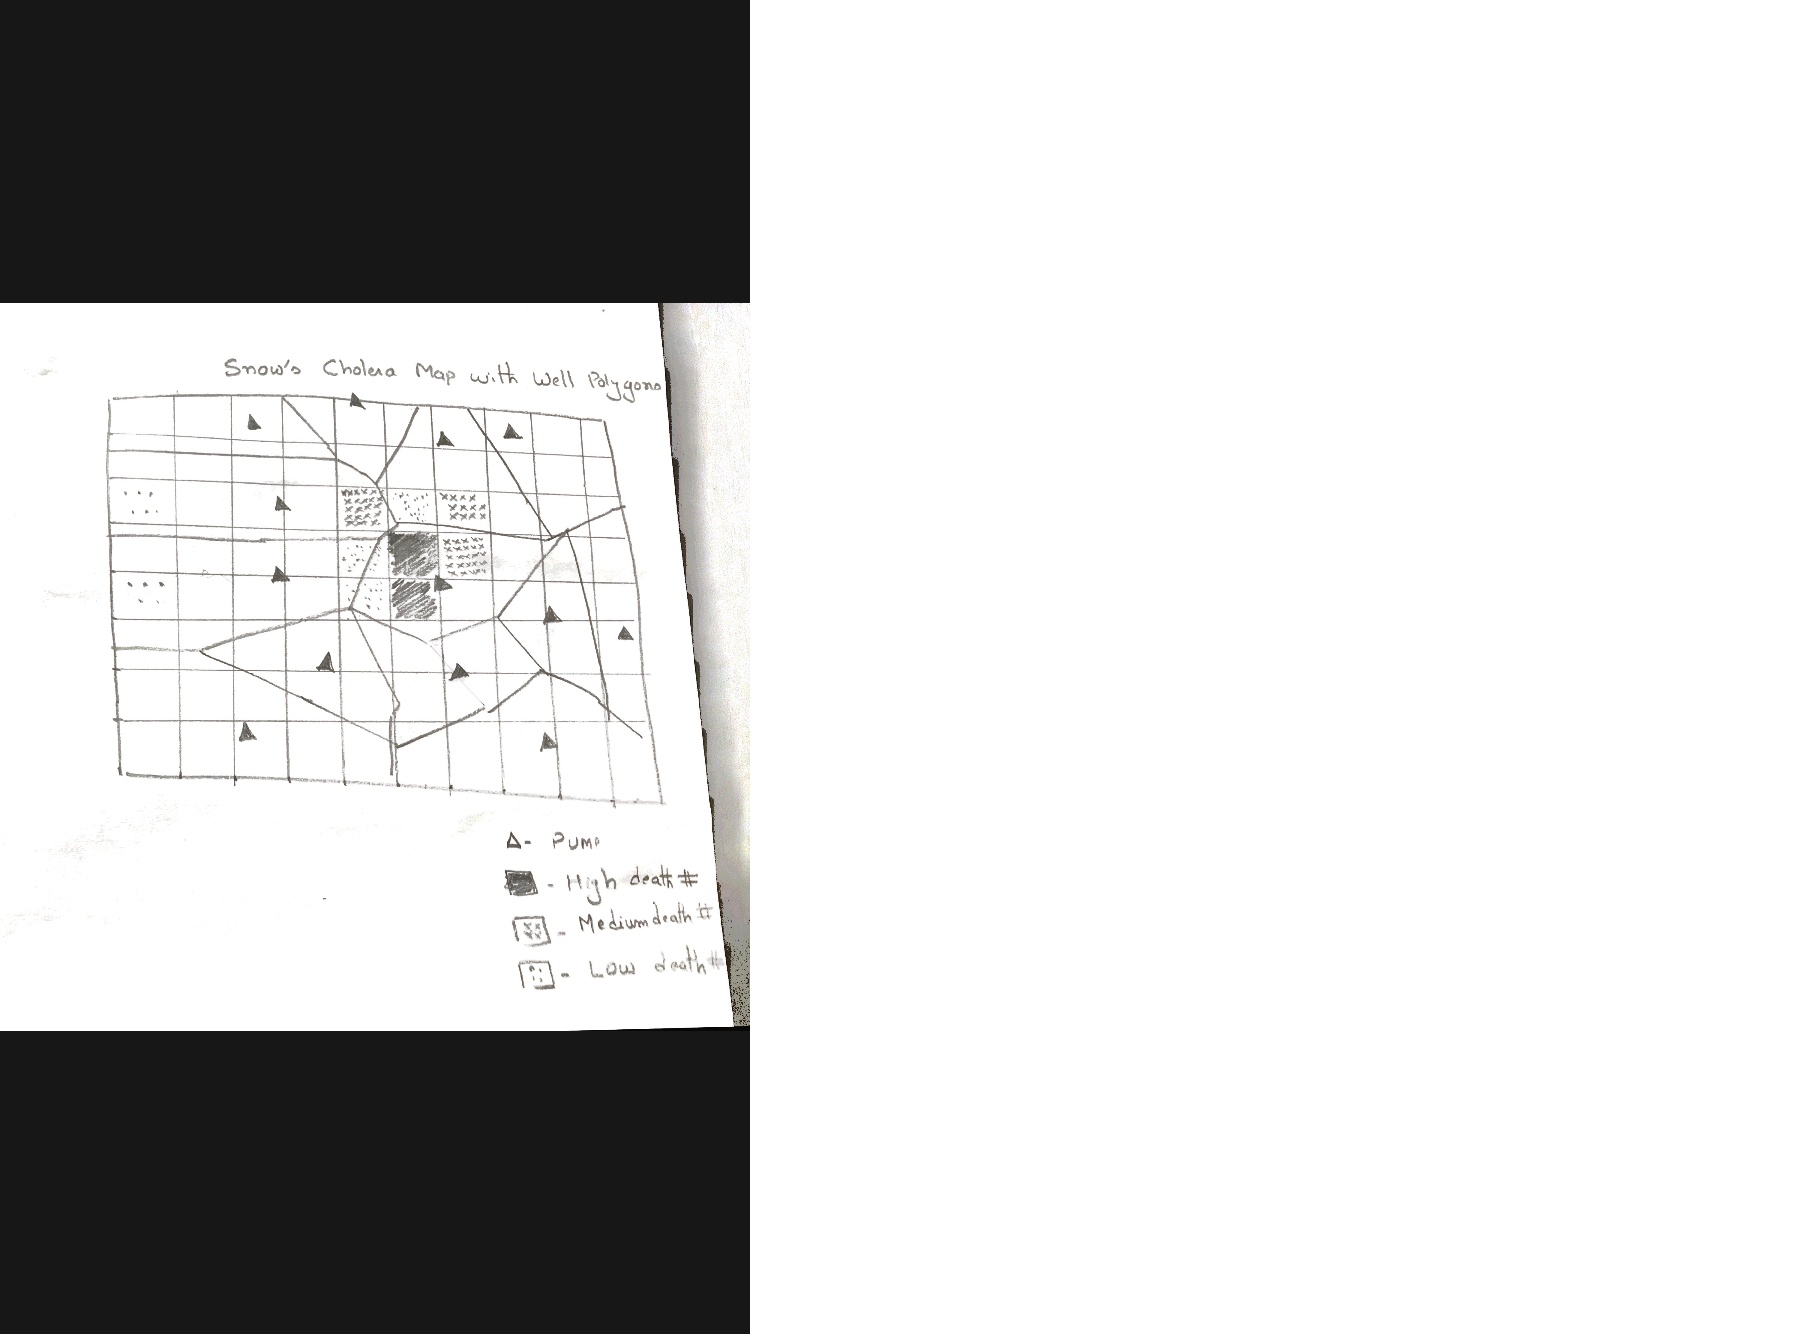 Snow's Cholera Map with Well Polygons
Δ- PUMP
- High death #
- Medium death #
- Low death #